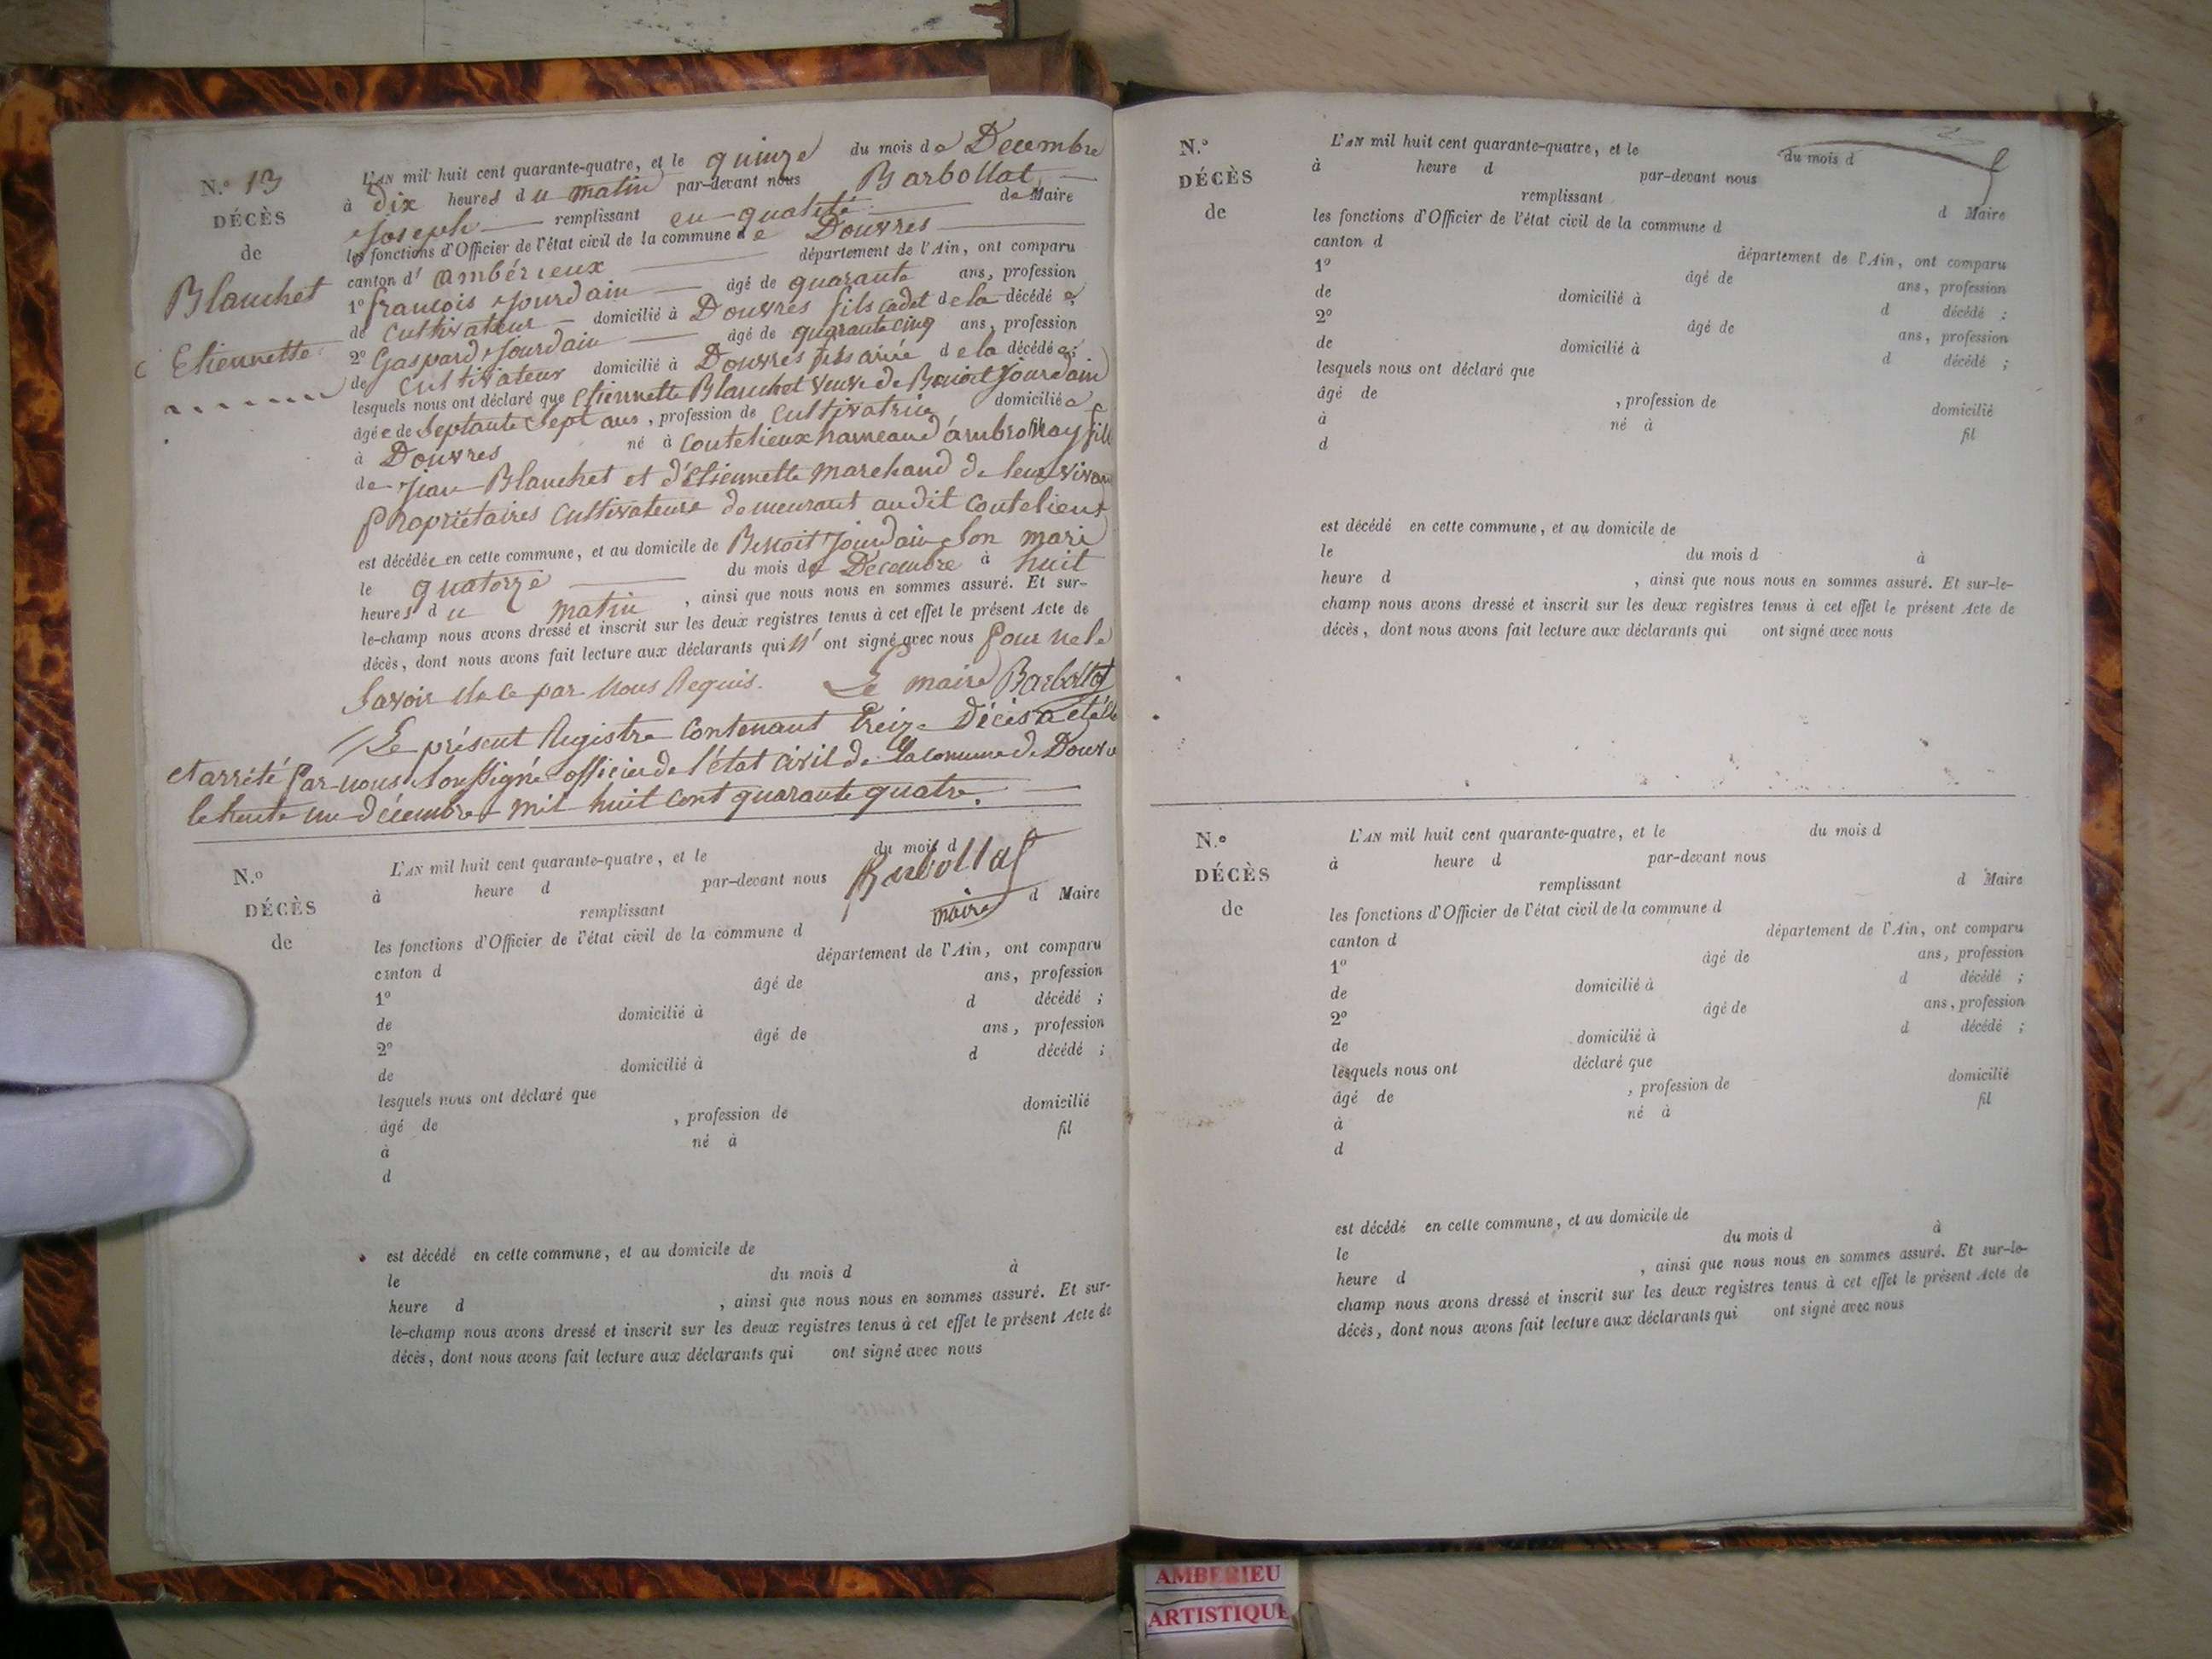 N.º 13
DÉCÈS
de
Blanchet
Etiennette
L'AN mil huit cent quarante-quatre, et le quinze du mois de Decembre
à Dix heures du matin par-devant nous Barbollat
Joseph remplissant en qualité de Maire
les fonctions d'Officier de l'état civil de la commune de Douvres
canton d'ambérieux département de l'Ain, ont comparu
1º françois Jourdain âgé de quarante ans, profession
de Cultivateur domicilié à Douvres fils cadet de la décédée;
2º Gaspard Jourdain âgé de quarante cinq ans, profession
de Cultivateur domicilié à Douvres fils ainé de la décédée;
lesquels nous ont déclaré que Etiennette Blanchet veuve de Benoit Jourdain
âgée de Septante Sept ans, profession de Cultivatrice domiciliée
à Douvres né à Coutelieux hameau d'ambronay fille
de Jean Blanchet et d'Etiennette Marchand de leur vivant
Propriétaires Cultivateurs demeurant audit Coutelieux
est décédée en cette commune, et au domicile de Benoit Jourdain Son mari
le quatorze du mois de Décembre à huit
heures du matin, ainsi que nous nous en sommes assuré. Et sur-
le-champ nous avons dressé et inscrit sur les deux registres tenus à cet effet le présent Acte de
décès, dont nous avons fait lecture aux déclarants qui n'ont signé avec nous Pour ne le
Savoir de ce par Nous Requis. Le maire Barbollat
Le présent Registre Contenant Treize Décès a été
et arrêté Par nous Soussigné officier de l'état civil de la Commune de Douvres
le trente un décembre mil huit cent quarante quatre.
Barbollat
maire
N.º
DÉCÈS
de
L'AN mil huit cent quarante-quatre, et le du mois d
à heure d par-devant nous
remplissant d Maire
les fonctions d'Officier de l'état civil de la commune d
canton d département de l'Ain, ont comparu
1º âgé de ans, profession
de domicilié à d décédé ;
2º âgé de ans, profession
de domicilié à d décédé ;
lesquels nous ont déclaré que
âgé de , profession de domicilié
à né à fil
d
est décédé en cette commune, et au domicile de
le du mois d à
heure d , ainsi que nous nous en sommes assuré. Et sur-
le-champ nous avons dressé et inscrit sur les deux registres tenus à cet effet le présent Acte de
décès, dont nous avons fait lecture aux déclarants qui ont signé avec nous
N.º
DÉCÈS
de
L'AN mil huit cent quarante-quatre, et le du mois d
à heure d par-devant nous
remplissant d Maire
les fonctions d'Officier de l'état civil de la commune d
canton d département de l'Ain, ont comparu
1º âgé de ans, profession
de domicilié à d décédé ;
2º âgé de ans, profession
de domicilié à d décédé ;
lesquels nous ont déclaré que
âgé de , profession de domicilié
à né à fil
d
est décédé en cette commune, et au domicile de
le du mois d à
heure d , ainsi que nous nous en sommes assuré. Et sur-le-
champ nous avons dressé et inscrit sur les deux registres tenus à cet effet le présent Acte de
décès, dont nous avons fait lecture aux déclarants qui ont signé avec nous
N.º
DÉCÈS
de
L'AN mil huit cent quarante-quatre, et le du mois d
à heure d par-devant nous
remplissant d Maire
les fonctions d'Officier de l'état civil de la commune d
canton d département de l'Ain, ont comparu
1º âgé de ans, profession
de domicilié à d décédé ;
2º âgé de ans, profession
de domicilié à d décédé ;
lesquels nous ont déclaré que
âgé de , profession de domicilié
à né à fil
d
est décédé en cette commune, et au domicile de
le du mois d à
heure d , ainsi que nous nous en sommes assuré. Et sur-le-
champ nous avons dressé et inscrit sur les deux registres tenus à cet effet le présent Acte de
décès, dont nous avons fait lecture aux déclarants qui ont signé avec nous
AMBERIEU
ARTISTIQUE